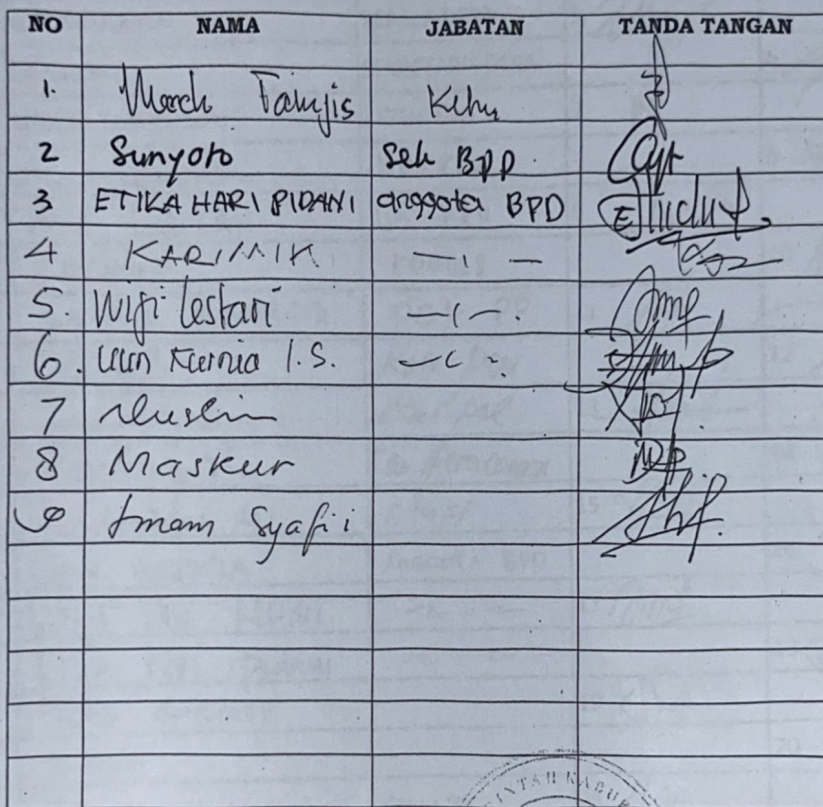 NO NAMA JABATAN TANDA TANGAN
1. Moch Tamjis
2 Sunyoto Sek BPD.
3 ETIKA HARI PIDANI anggota BPD
4 KARIMIK — ı —
5. Wiji lestari — ı — .
6. Uun Kurnia I.S. — ı — .
7 Muslim
8 Maskur
9 Imam Syafi'i
INTAH KABU